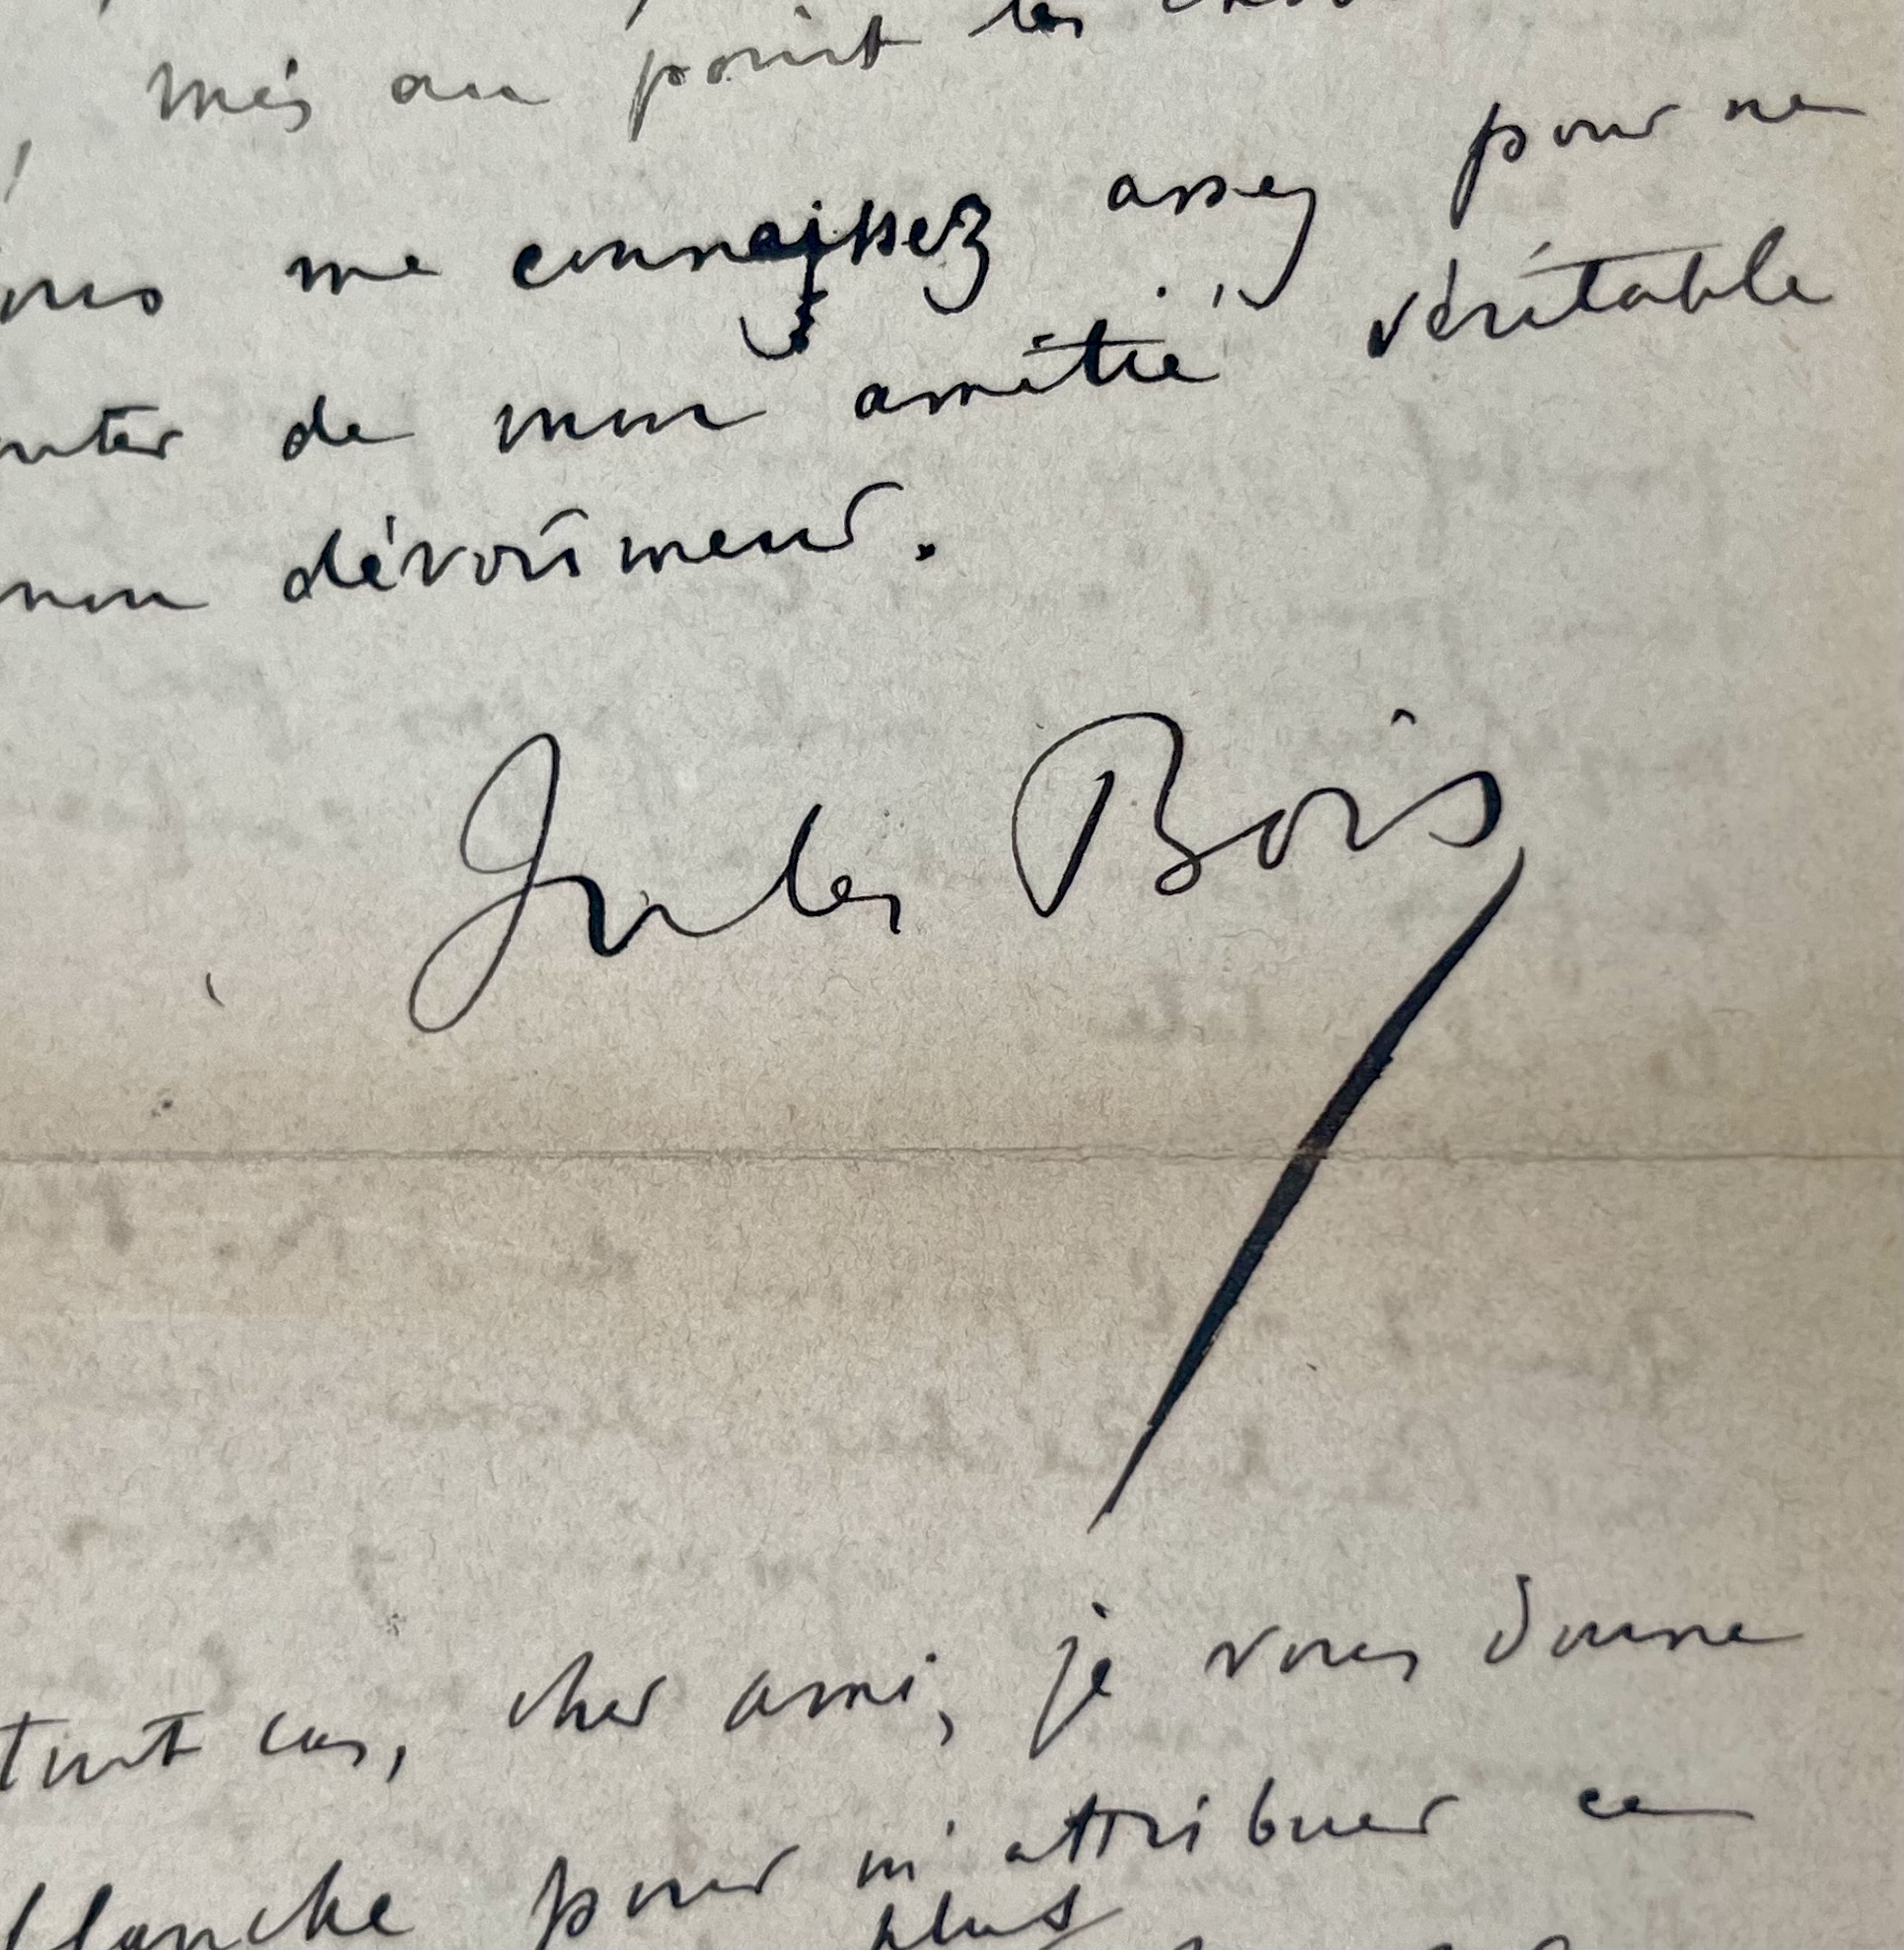 mis au point les
me connaissez assez pour ne
de mon amitié véritable
mon dévoûment.
Jules Bois
tout cas, cher ami, je vous donne
blanche pour m'attribuer ce
plus